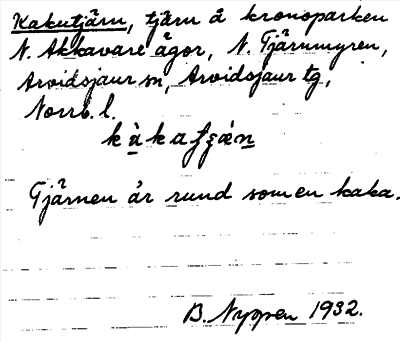 Kakutjärn, tjärn å kronoparken
N. Akkavare ägor, N. Tjärnmyren,
Arvidsjaur sn, Arvidsjaur tg,
Norrb. l.
Tjärnen är rund som en kaka.
B. Nyppen 1932.